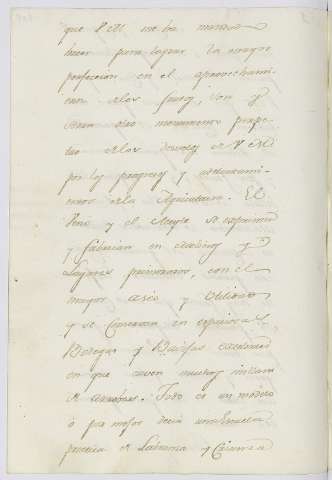 que V. M. me ha manda
hacer para lograr la mayor
perfeccion en el aprovechami
ento de los frutos, son y
seran otro monumento perpe
tuo de los deseos de V. M.
por los progresos y adelantami
entos de la Agricultura. El
Vino y el Aceyte se exprimen
y fabrican en Molinos y
Lagares primorosos, con el
mayor aseo y utilidad
y se conservan en exquisitas
Bodegas y Vasijas
en que caven muchos millares
de arrobas. Todo es un modelo
ó por mejor decir una Escuela
practica de Labranza y Crianza